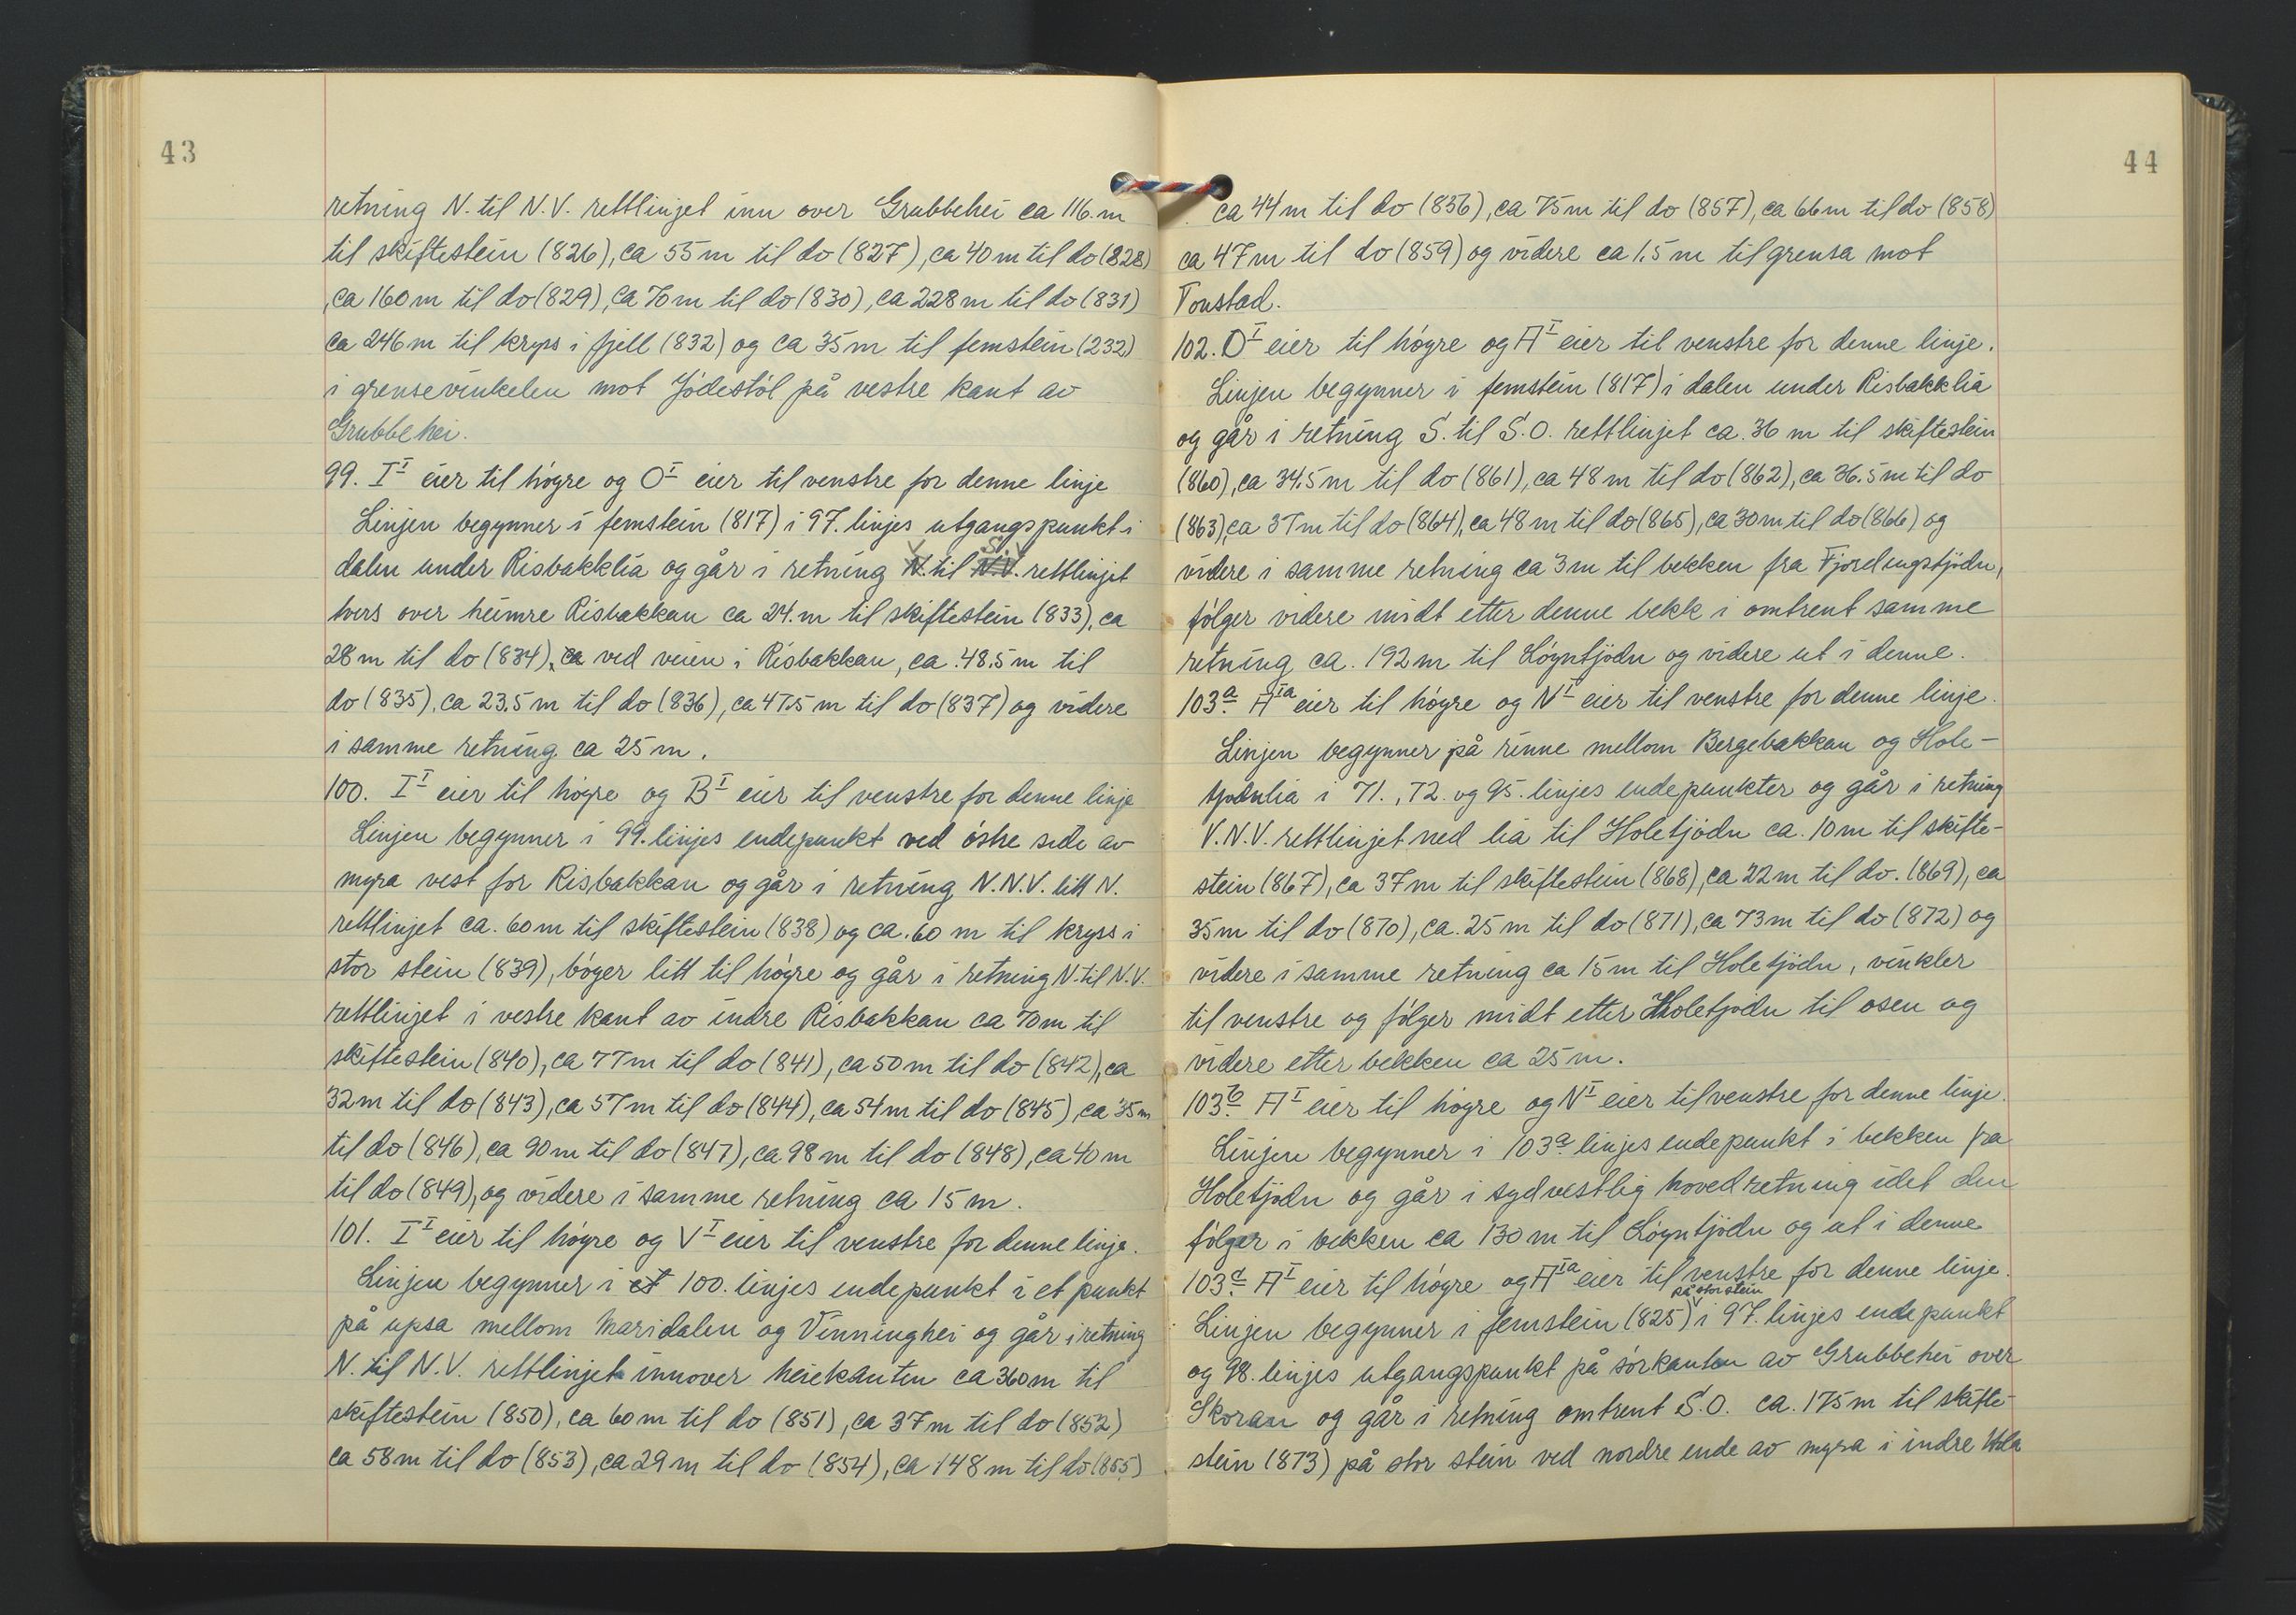 43
retning N. til N.V. rettlinjet inn over Grubbehei ca 116. m
til skiftestein (826), ca 55 m til do (827), ca 40 m til do (828)
, ca 160 m til do (829), ca 70 m til do (830), ca 228 m til do (831)
ca 246 m til kryss i fjell (832) og ca 35 m til femstein (232)
i grensevinkelen mot Jödestöl på vestre kant av
Grubbehei.
99. I I eier til högre og O I eier til venstre for denne linje
Linjen begynner i femstein (817) i 97. linjes utgangspunkt i
dalen under Risbakklia og går i retning V N. til S.V. N.V. rettlinjet
tvers over heimre Risbakkan ca 24. m til skiftestein (833), ca
28 m til do (834), ca ved veien i Risbakkan, ca. 48.5 m til
do (835), ca 23.5 m til do (836), ca 47.5 m til do (837) og videre
i samme retning ca 25 m.
100. I I eier til högre og B I eier til venstre for denne linje
Linjen begynner i 99. linjes endepunkt ved östre side av
myra vest for Risbakkan og går i retning N.N.V. litt N.
rettlinjet ca. 60 m til skiftestein (838) og ca. 60 m til kryss i
stor stein (839), böyer litt til högre og går i retning N. til N.V.
rettlinjet i vestre kant av indre Risbakkan ca 70 m til
skiftestein (840), ca 77 m til do (841), ca 50 m til do (842), ca
32 m til do (843), ca 57 m til do (844), ca 54 m til do (845), ca 35 m
til do (846), ca 90 m til do (847), ca 98 m til do (848), ca 40 m
til do (849), og videre i samme retning ca 15 m.
101. I I eier til högre og V I eier til venstre for denne linje.
Linjen begynner i et 100. linjes endepunkt i et punkt
på upsa mellom Maridalen og Vinninghei og går i retning
N. til N.V. rettlinjet innover heiekanten ca 360 m til
skiftestein (850), ca 60 m til do (851), ca 37 m til do (852)
ca 58 m til do (853), ca 29 m til do (854), ca 148 m til do (855)
44
ca 44 m til do (856), ca 75 m til do (857), ca 66 m til do (858)
ca 47 m til do (859) og videre ca 1.5 m til grensa mot
Tonstad.
102. O I eier til högre og A I eier til venstre for denne linje.
Linjen begynner i femstein (817) i dalen under Risbakklia
og går i retning S. til S.O. rettlinjet ca. 36 m til skiftestein
(860), ca 34.5 m til do (861), ca 48 m til do (862), ca 36.5 m til do
(863), ca 37 m til do (864), ca 48 m til do (865), ca 30 m til do (866) og
videre i samme retning ca 3 m til bekken fra Fjordungstjödn,
fölger videre midt etter denne bekk i omtrent samme
retning ca. 192 m til Löyntjödn og videre ut i denne.
103 a. A Ia eier til högre og N I eier til venstre for denne linje.
Linjen begynner på rinne mellom Bergebakkan og Hole-
tjödnlia i 71., 72. og 95. linjes endepunkter og går i retning
V.N.V. rettlinjet ned lia til Holetjödn ca. 10 m til skifte-
stein (867), ca 37 m til skiftestein (868), ca 22 m til do. (869), ca
35 m til do (870), ca. 25 m til do (871), ca 73 m til do (872) og
videre i samme retning ca 15 m til Holetjödn, vinkler
til venstre og fölger midt etter Holetjödn til osen og
videre etter bekken ca 25 m.
103 b. A I eier til högre og N I eier til venstre for denne linje.
Linjen begynner i 103 a linjes endepunkt i bekken fra
Holetjödn og går i sydvestlig hovedretning idet den
fölger i bekken ca 130 m til Löyntjödn og ut i denne
103 c. A I eier til högre og A Ia eier til venstre for denne linje.
på stor stein
Linjen begynner i femstein (825) i 97. linjes endepunkt
og 98. linjes utgangspunkt på sörkanten av Grubbehei over
Skoran og går i retning omtrent S.O. ca. 175 m til skifte-
stein (873) på stor stein ved nordre ende av myra i indre